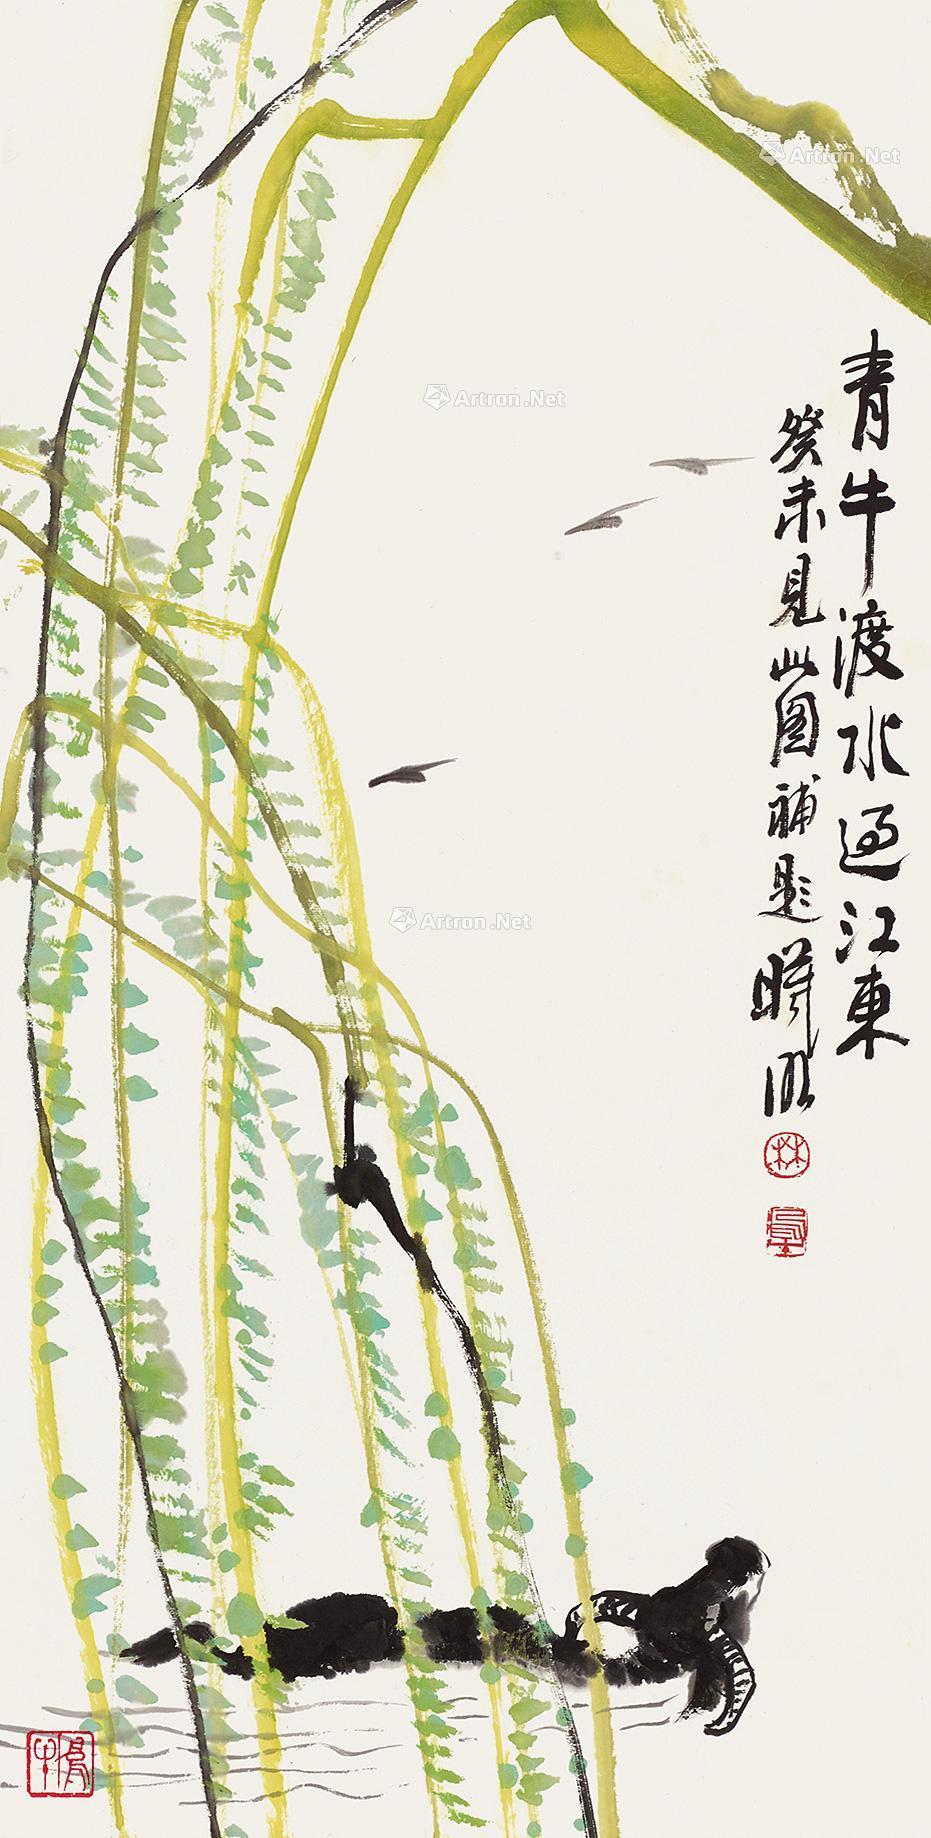 青牛渡水過江東
癸未見此圖補題曉明
林
Artron.Net
Artron.Net
Artron.Net